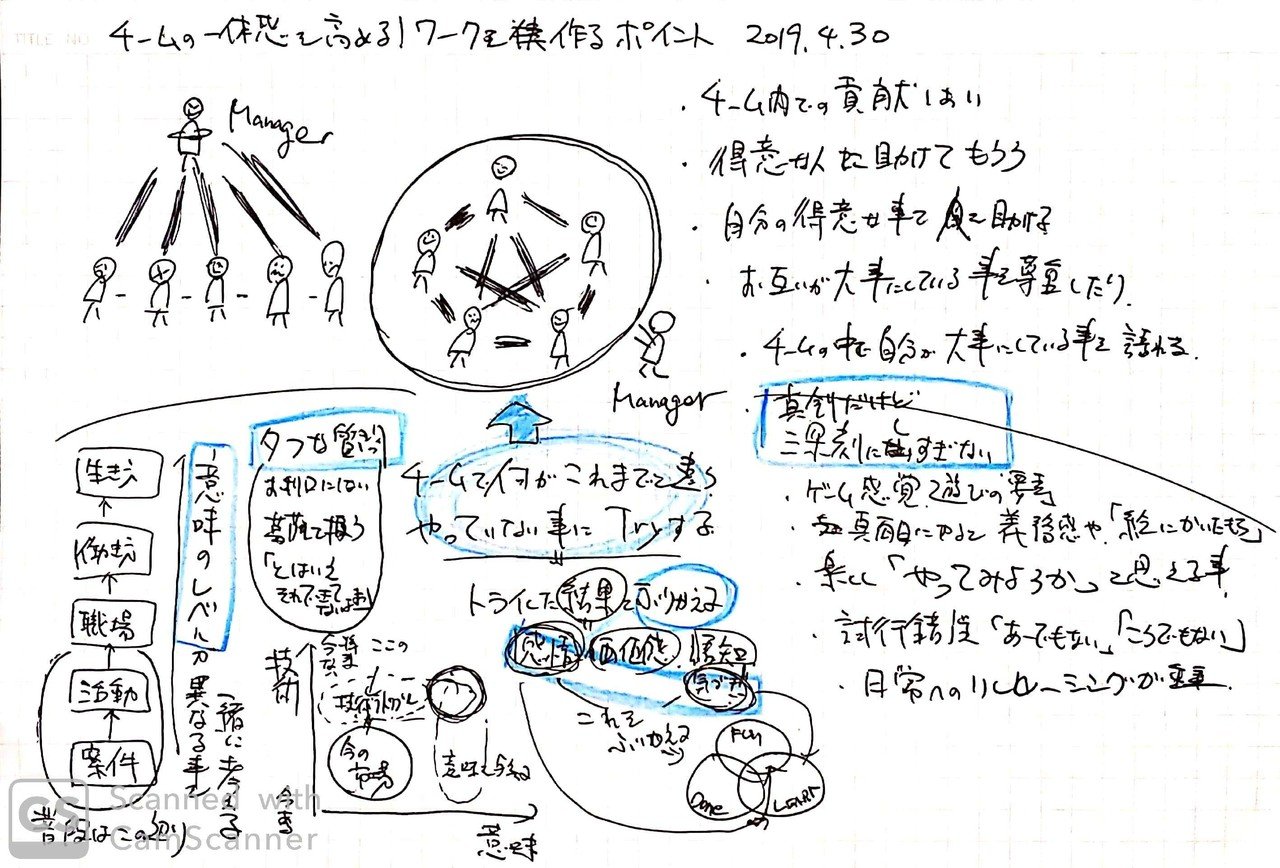 TITLE NO
チームの一体感を高める！ワークを作るポイント 2019.4.30
Manager
Manager
・チーム内での貢献しあい
・得意な人に助けてもらう
・自分の得意な事で 助ける
・お互いが大事にしている事を尊重したり
・チームの中で自分が大事にしている事を語れる
・真剣だけど
深刻になりすぎない
・ゲーム感覚 遊びの要素
・真面目にやると義務感や「絵にかいたもち」
・楽しく「やってみようか」と思える事
・試行錯誤「あーでもない」「こうでもない」
・日常へのリレーシングが重要
生き方
働き方
職場
活動
案件
普段はこの辺り
意味のレベルが異なる事を
一緒に考える
タフな問い
お利口にはない
葛藤を扱う
「とはいえ
それで
チームで何がこれまでと違う
やっていない事にTryする
トライした結果をふりかえる
感情 価値感 認知
気づき
これをふりかえる
FUN
DONE
LEARN
技術
今まで
ない
ここの
今の
市場
意味を
今ある
意味
Scanned with
CamScanner
CS